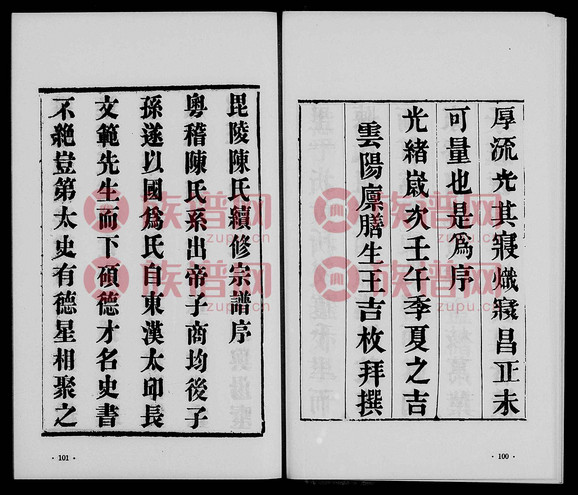 厚流光其寢熾寢昌正未
可量也是爲序
光緒嵗次壬午季夏之吉
雲陽廩膳生王吉枚拜撰
· 100 ·
毘陵陳氏續修宗譜序
粵稽陳氏系出帝子商均後子
孫遂以國爲氏自東漢太邱長
文範先生而下碩德才名史書
不絶豈第太史有德星相聚之
· 101 ·
族谱网
zupu.cn
族谱网
zupu.cn
族谱网
zupu.cn
族谱网
zupu.cn